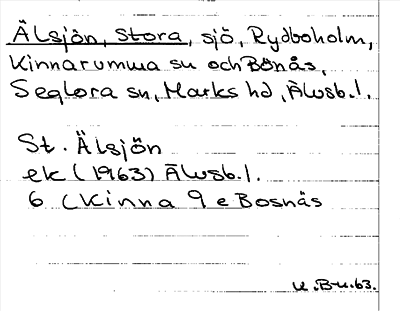 Älsjön, Stora, sjö, Rydboholm,
Kinnarumma sn och Bonås,
Seglora sn, Marks hd, Älvsb.l.
St. Älsjön
ek (1963) Älvsb.l.
6 C Kinna 9 e Bosnäs
K.B-u.63.